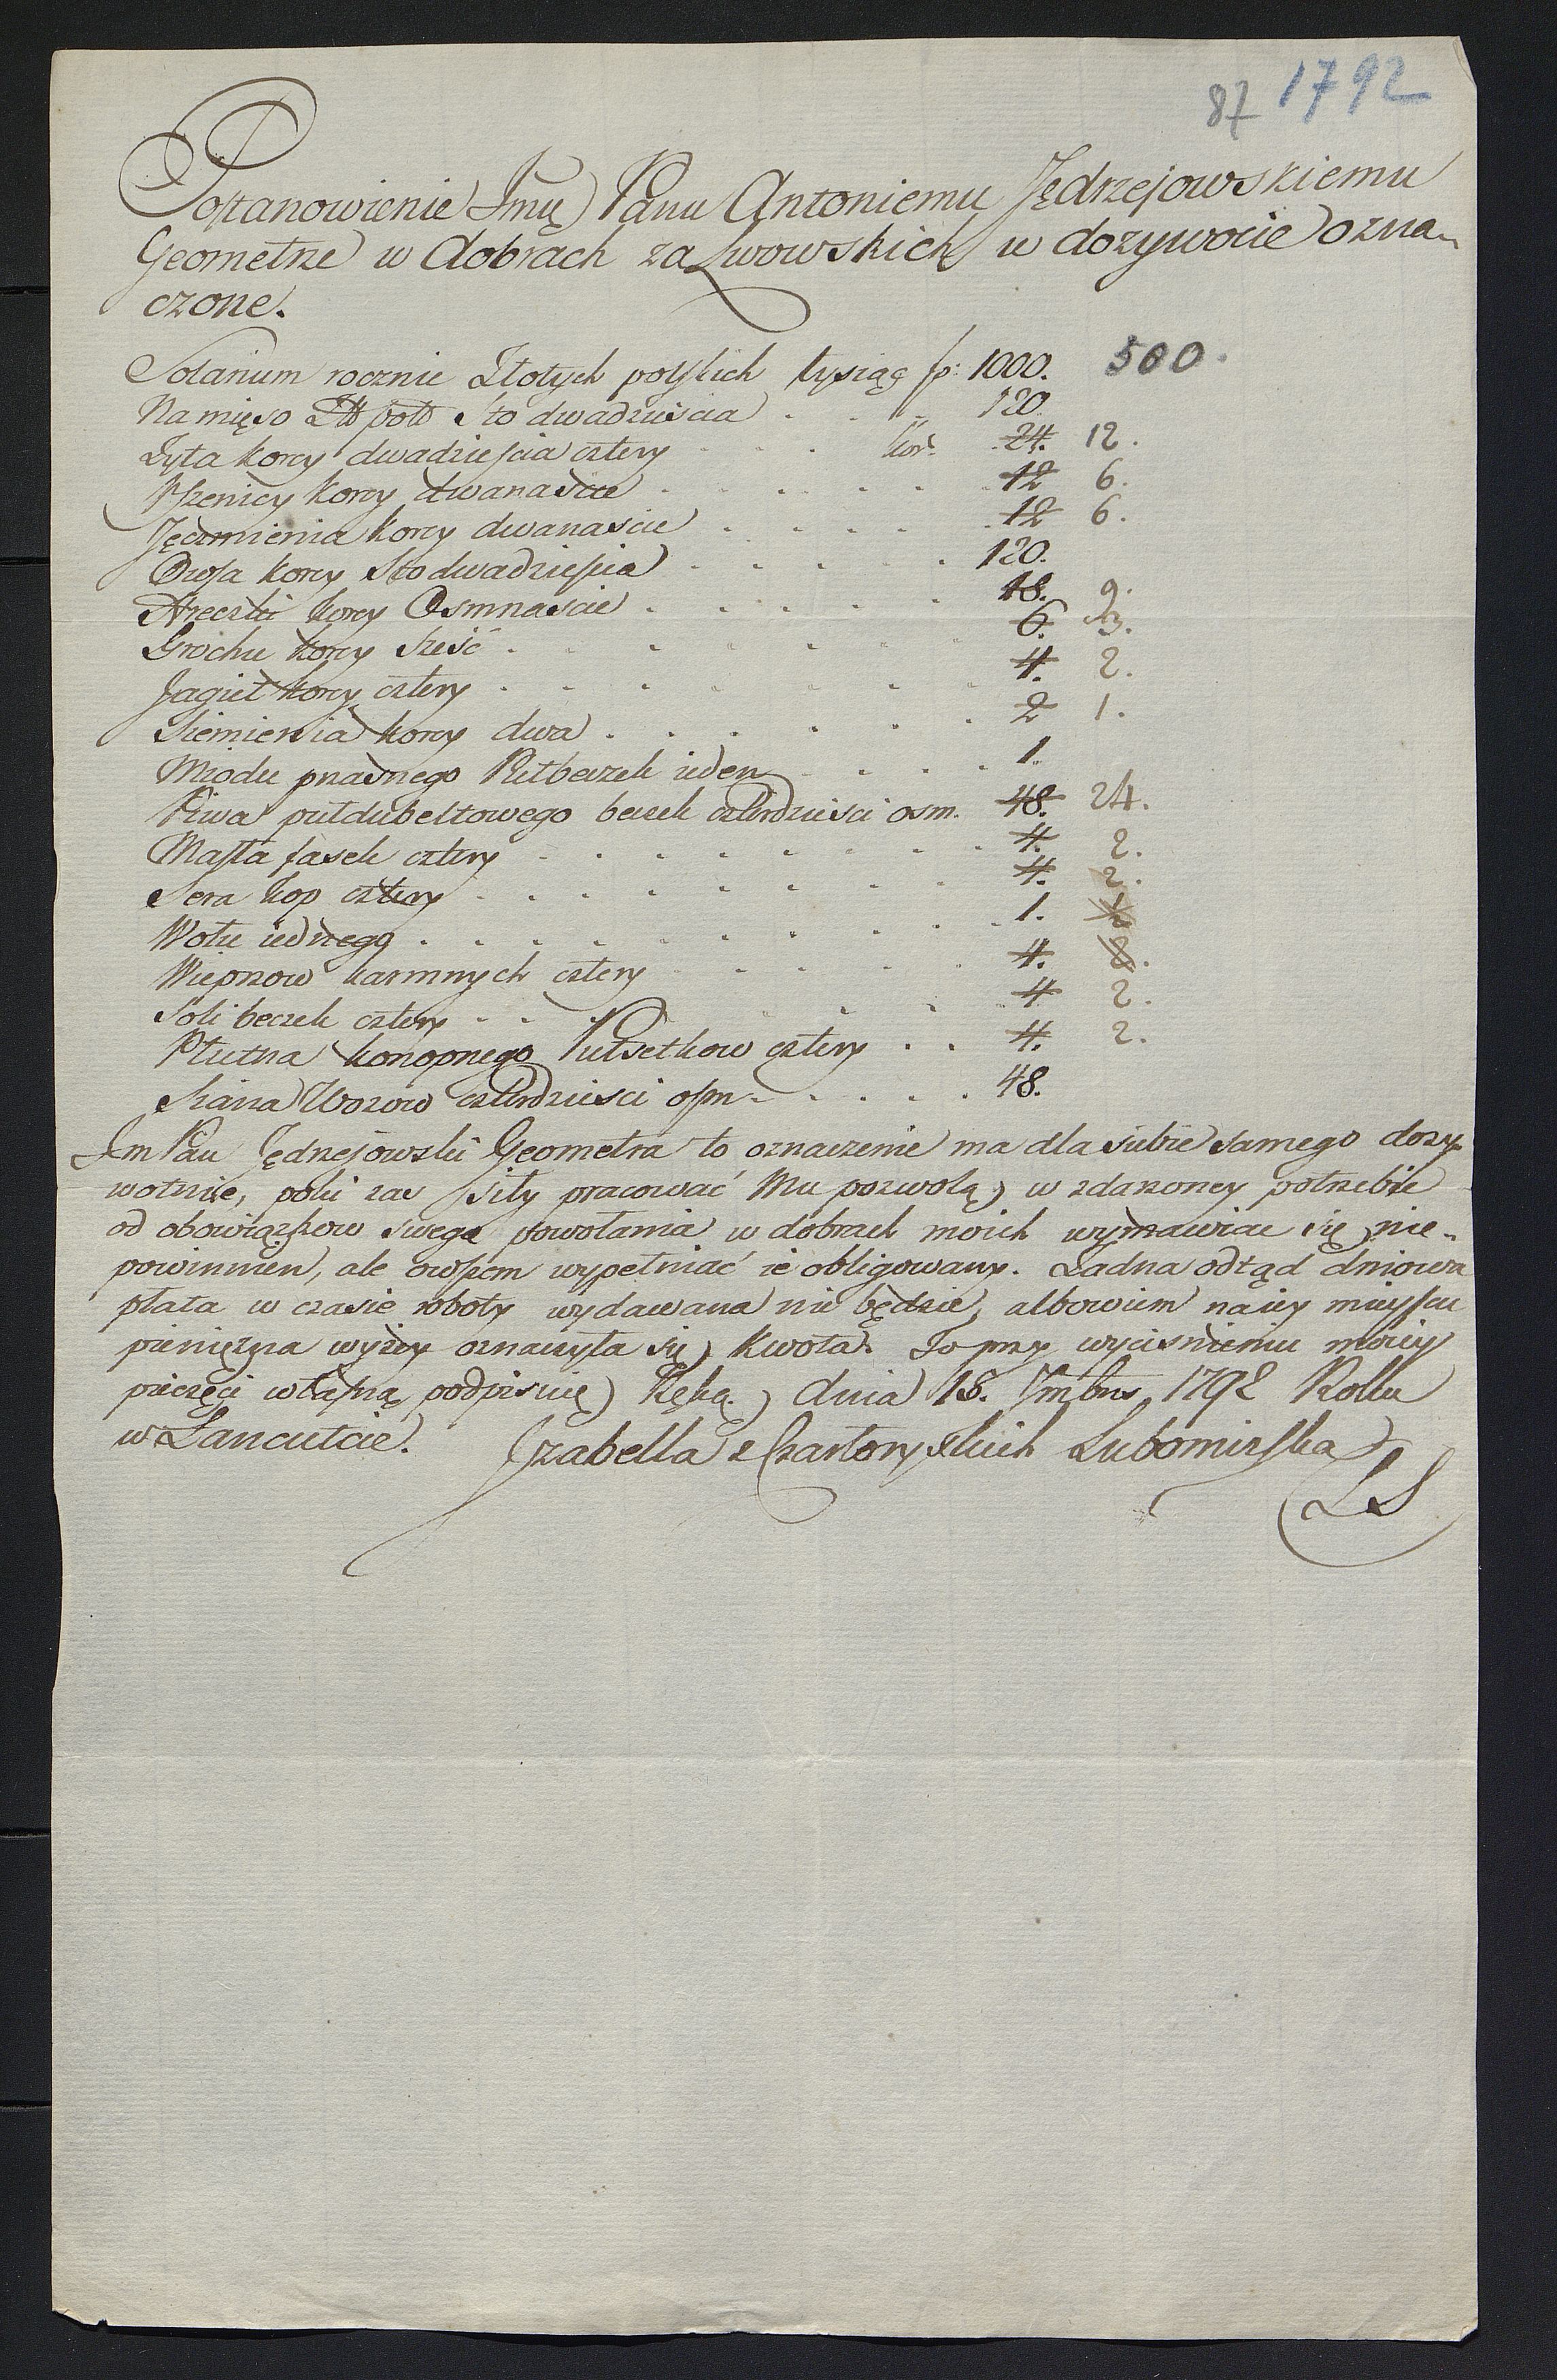 87 1792
Postanowienie Jmć Panu Antoniemu Jędrzejowskiemu
Geometrze w dobrach za Lwowskich w dozywocie ozna-
czone.
Solarium rocznie Złotych polskich tysiąc fp: 1000. 500.
Na mięso Złt pols Sto dwadziescia . . . 120.
Zyta korcy dwadziescia cztery . . . Kor. 24. 12.
Pszenicy korcy dwanascie . . . 12 6.
Jęczmienia korcy dwanascie . . . 12 6.
Owsa korcy Sto dwadziescia . . . 120.
Hreczki korcy Osmnascie . . . 18. 9.
Grochu korcy Sześć . . . 6. 3.
Jagieł korcy cztery . . . 4. 2.
Siemienia korcy dwa . . . 2 1.
Miodu przasnego Pułbeczek ieden . . . 1.
Piwa pułdubeltowego beczek czterdziesci osm. 48. 24.
Masła fasek cztery . . . 4. 2.
Sera kop cztery . . . 4. 2.
Wołu iednego . . . 1.
Wieprzow karmnych cztery . . . 4. 8.
Soli beczek cztery . . . 4 2.
Płutna konopnego Pułsetkow cztery . . 4. 2.
Siana Wozow czterdziesci osm . . . 48.
Jm Pan Jędrzejowski Geometra to oznaczenie ma dla siebie samego dozy-
wotnie, poki zas siły pracować Mu pozwolą, w zdarzoney potrzebie
od obowiązkow swego powołania w dobrach moich wymawiac się nie-
powinnien, ale owszem wypełniać ie obligowany. Zadna odtąd dniowa
płata w czasie roboty wydawana nie będzie, albowiem na iey mieyscu
pieniężna wyżey oznaczyła się kwota. To przy wycisnieniu moiey
pieczęci własną podpisuię Ręką. dnia 18. 7mbris 1792 Roku
w Łancutcie. Jzabella z Czartoryskich Lubomirska
LS